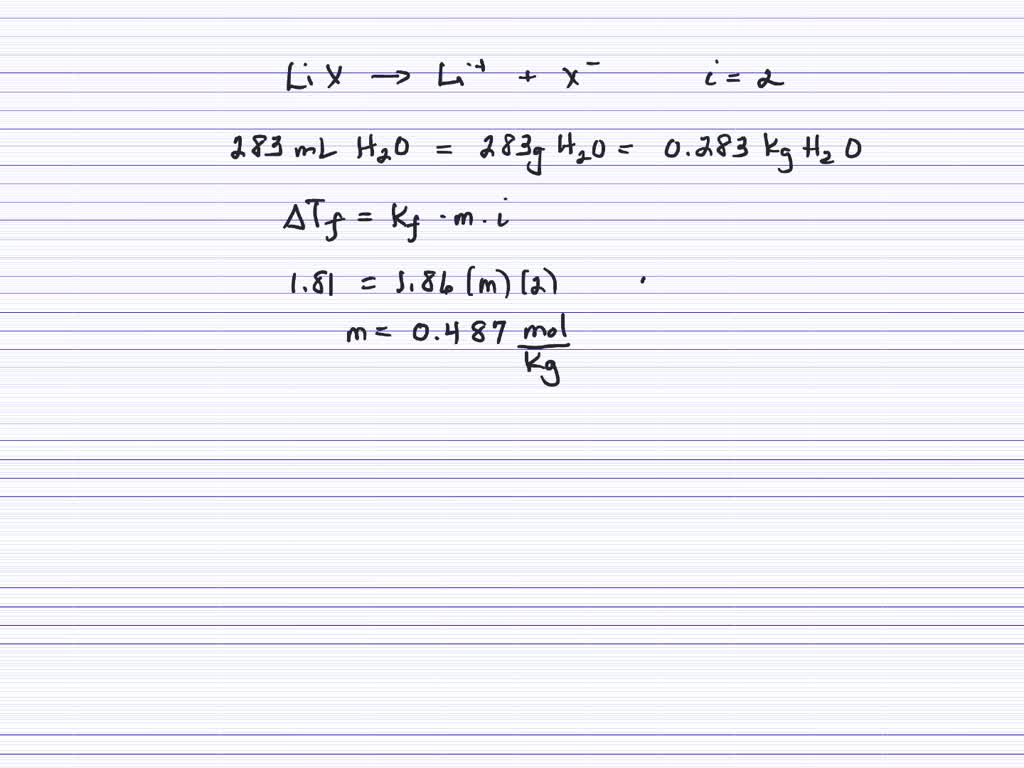 LiX → Li⁺ + X⁻ i = 2
283 mL H₂O = 283g H₂O = 0.283 Kg H₂O
ΔTf = Kf · m · i
1.81 = 1.86 (m) (2)
m = 0.487 mol/Kg